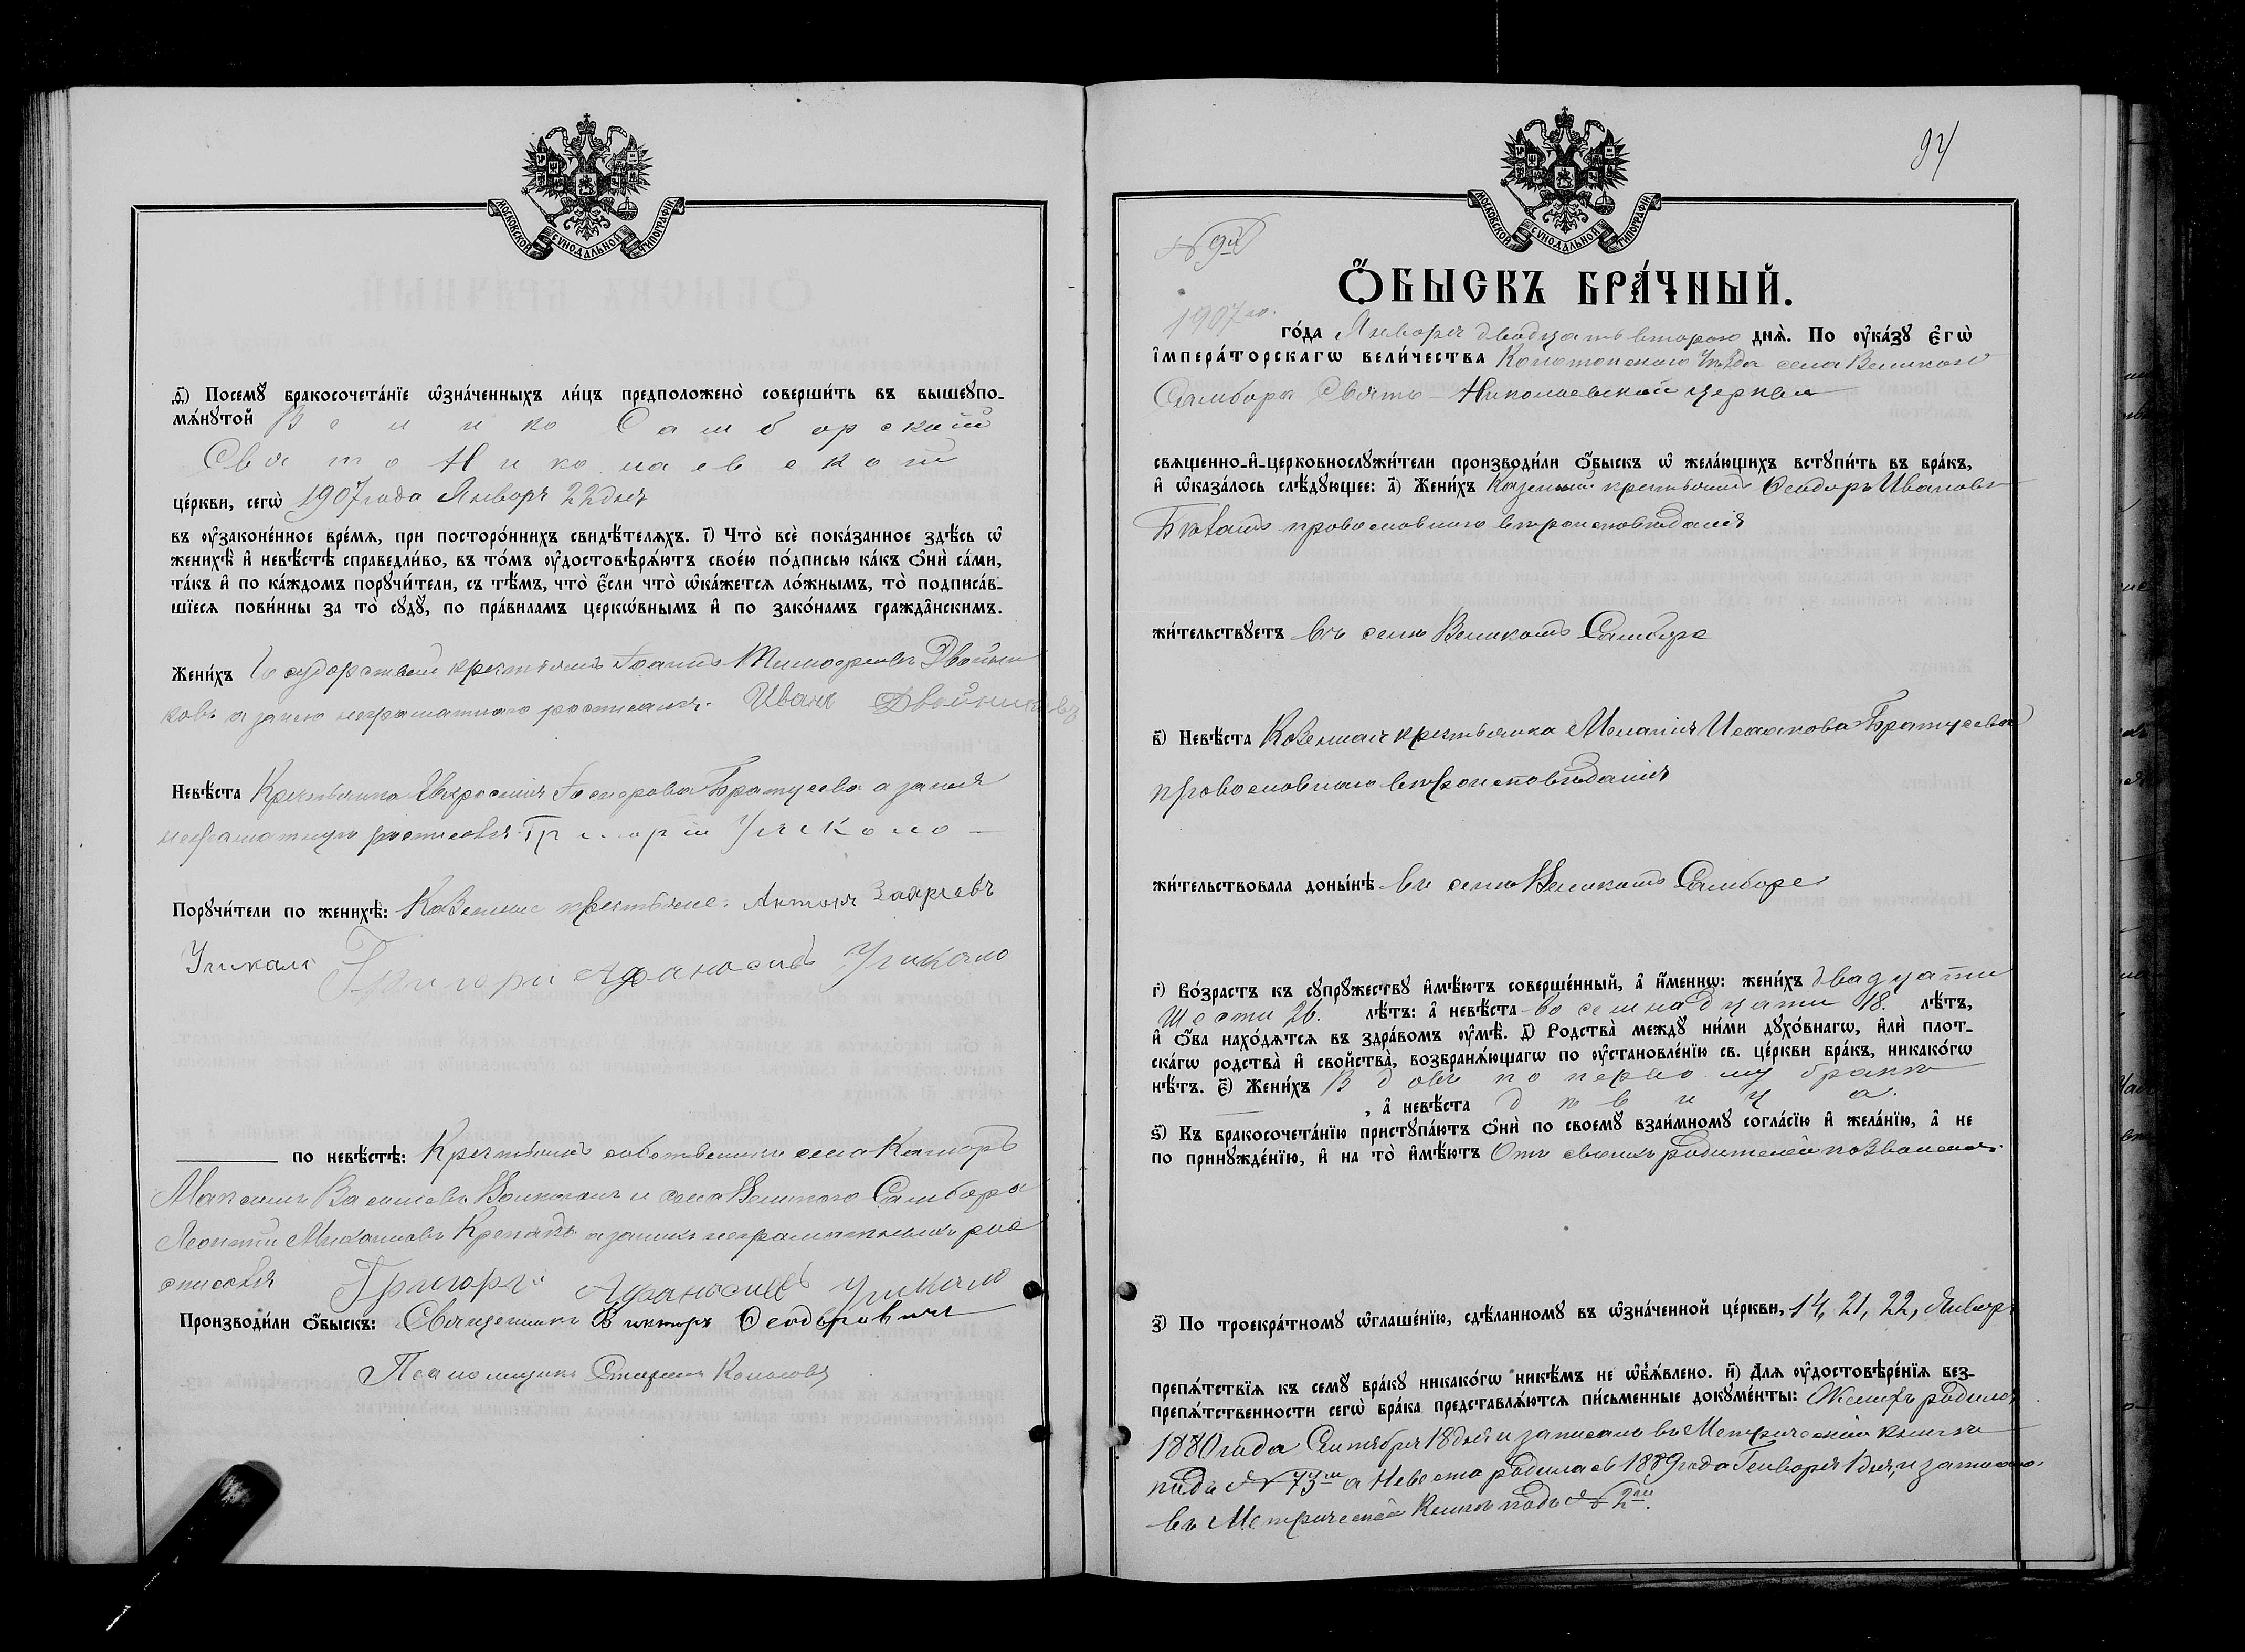 МОСКОВСКОЙ СѴНОДАЛЬНОЙ ТИПОГРАФІИ
д҃ı) Посемꙋ̀ бракосочета́нїе ѡ҆зна́ченныхъ ли́цъ предположено̀ соверши́ть въ вышеꙋпо-
мѧ́нꙋтой Велико Самборский
Свято Николаевской
це́ркви, сегѡ̀ 1907 года Января 22 дня
въ ᲂу҆законе́нное вре́мѧ, при посторо́ннихъ свидѣ́телѧхъ. і҃) Что̀ всѐ пока́занное здѣ́сь ѡ҆
женихѣ̀ и҆ невѣ́стѣ справедли́во, въ то́мъ ᲂу҆достовѣрѧ́ютъ свое́ю по́дписью ка́къ ѻ҆нѝ са́ми,
та́къ и҆ по ка́ждомъ порꙋчи́тели, съ тѣ́мъ, что̀ є҆́сли что̀ ѡ҆ка́жетсѧ ло́жнымъ, то̀ подписа́в-
шїесѧ пови́нны за то̀ сꙋдꙋ̀, по пра́виламъ церко́внымъ и҆ по зако́намъ гражда́нскимъ.
Жени́хъ Государствен крестьянин Іоаннъ Тимофеевъ Двойни
ковъ а за него неграматного росписался. Иванъ Двойниковъ
Невѣ́ста Крестьянка Братусева а за нея
неграматную росписовся Григорій Уликало
Порꙋчи́тели по женихѣ̀: Казенные крестьяне: Антонъ
Уликало Григори Афанасиевъ Уликало
по невѣ́стѣ: Крестьянинъ собственникъ села
Максимъ Васильевъ и села Великого Самбора
Леонтий Михайловъ а за нихъ неграматныхъ рос
списовся Григорй Афанасиевъ Уликало
Производи́ли ѻ҆́быскъ: Священникъ Викторъ Ѳеодоровичъ
Псаломщикъ Стефанъ
94
МОСКОВСКОЙ СѴНОДАЛЬНОЙ ТИПОГРАФІИ
№ 9й
Ѻ҆́БЫСКЪ БРА́ЧНЫЙ.
1907го.
го́да Января двадцать второго днѧ̀. По ᲂу҆ка́зꙋ є҆гѡ̀
і҆мпера́торскагѡ вели́чества Конотопского Уѣзда села Великого
Самбора Свято-Николаевской церкви
свѧщенно-и҆-церковнослꙋжи́тели производи́ли ѻ҆́быскъ ѡ҆ жела́ющихъ встꙋпи́ть въ бра́къ,
и҆ ѡ҆каза́лось слѣ́дꙋющее: а҃) Жени́хъ Казенный крестьянинъ Ѳеодоръ Ивановъ
православного вѣроисповѣданія
жи́тельствꙋетъ въ селѣ Великомъ Самборе
в҃) Невѣ́ста Казенная крестьянка Меланія Исаакова Братусева
православнаго вѣроисповѣданія
жи́тельствовала доны́нѣ въ селѣ Великомъ Самборе
г҃) Во́зрастъ къ сꙋпрꙋ́жествꙋ и҆мѣ́ютъ соверше́нный, а҆ и҆́менно: жени́хъ двадцати
шести 26. лѣ́тъ: а҆ невѣ́ста восемнадцати 18. лѣ́тъ,
и҆ ѻ҆́ба нахо́дѧтсѧ въ здра́вомъ ᲂу҆мѣ̀. д҃) Родства̀ междꙋ̀ ни́ми дꙋхо́внагѡ, и҆лѝ плот-
ска́гѡ родства̀ и҆ свойства̀, возбранѧ́ющагѡ по ᲂу҆становле́нїю св. це́ркви бра́къ, никако́гѡ
нѣ́тъ. є҃) Жени́хъ Вдовъ по первому браки
, а҆ невѣ́ста дѣвица.
ѕ҃) Къ бракосочета́нїю пристꙋпа́ютъ ѻ҆нѝ по своемꙋ̀ взаи́мномꙋ согла́сїю и҆ жела́нїю, а҆ не
по принꙋжде́нїю, и҆ на то̀ и҆мѣ́ютъ Отъ своихъ родителей позволение.
з҃) По троекра́тномꙋ ѡ҆глаше́нїю, сдѣ́ланномꙋ въ ѡ҆зна́ченной це́ркви, 14, 21, 22, Января
препѧ́тствїѧ къ семꙋ̀ бра́кꙋ никако́гѡ никѣ́мъ не ѡ҆б̾ѧ́влено. и҃) Длѧ ᲂу҆достовѣре́нїѧ без-
препѧ́тственности сегѡ̀ бра́ка представлѧ́ютсѧ пи́сьменные докꙋме́нты: Женихъ родилс
1880 года Сентября 18 дня и записано въ Метрической книги
подъ № 73м а Невеста родилась 1889 года Генваря 1 дня, и записано
въ Метрической Книги подъ № 2м.